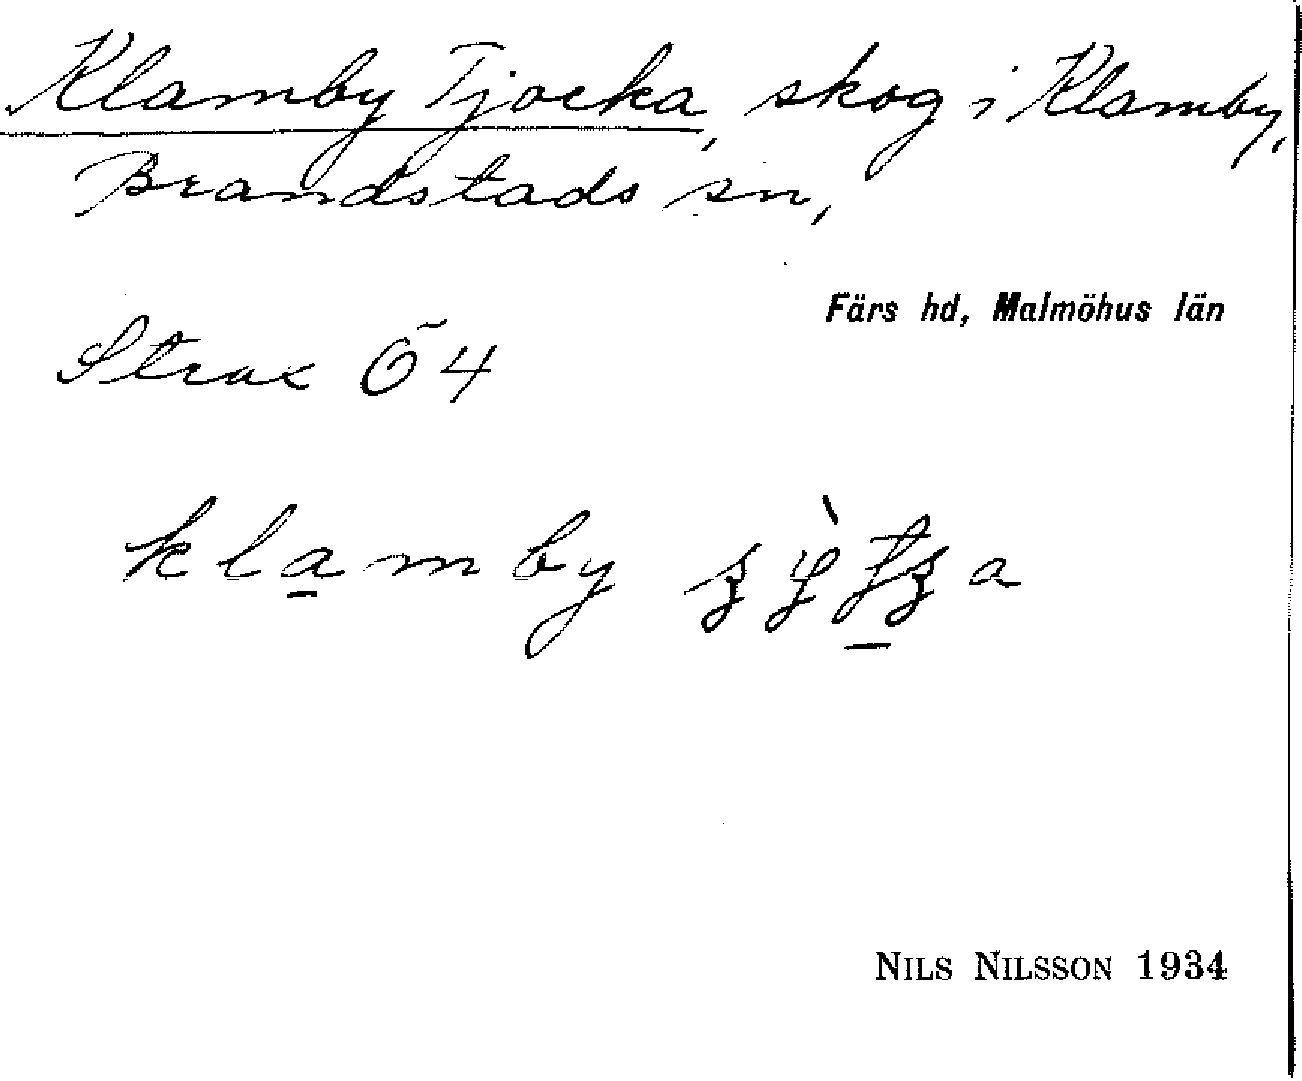 Klamby Tjocka, skog i Klamby,
Brandstads sn,
Färs hd, Malmöhus län
Strax Ö 4
klamby
NILS NILSSON 1934